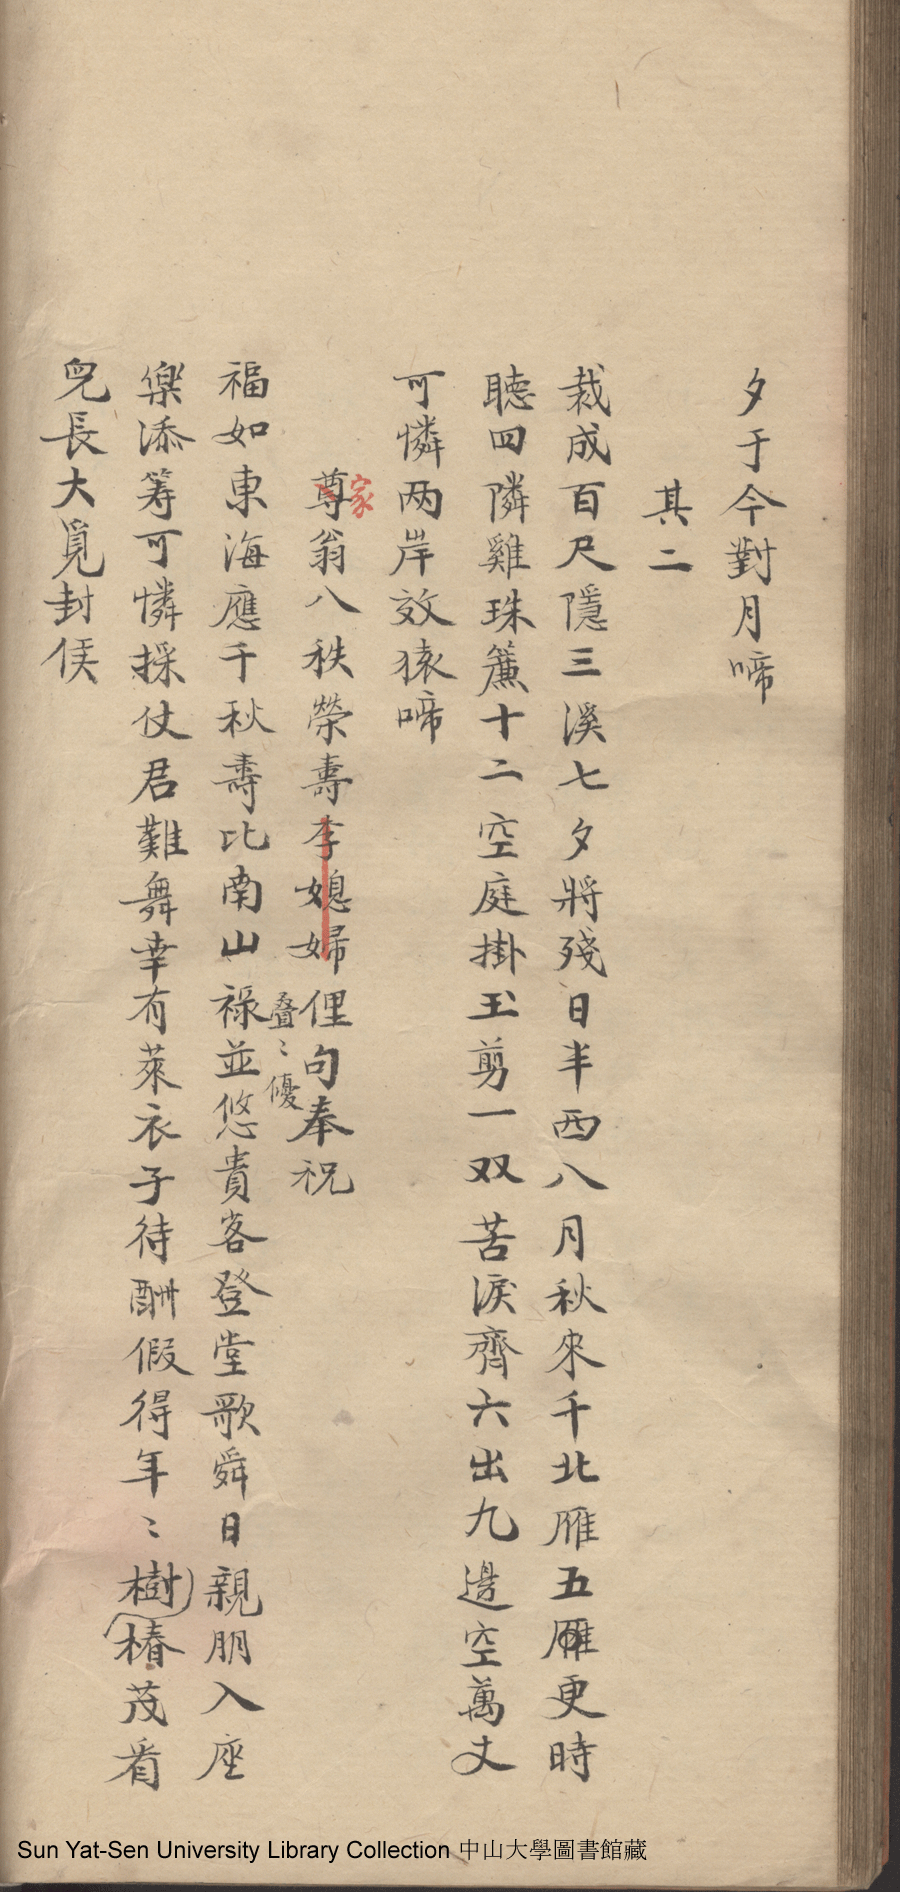 夕于今對月啼
其二
裁成百尺隱三溪七夕將殘日半西八月秋來千北雁五雁更時
聽四隣雞珠簾十二空庭掛玉剪一双苦淚齊六出九邊空萬丈
可憐两岸效猿啼
尊翁八秩榮壽李媳婦俚句奉祝
家
叠〻優
福如東海應千秋壽比南山祿並悠貴客登堂歌舜日親朋入座
樂添籌可憐採仗君難舞幸有萊衣子待酬假得年〻樹椿茂看
兒長大覓封侯
Sun Yat-Sen University Library Collection 中山大學圖書館藏